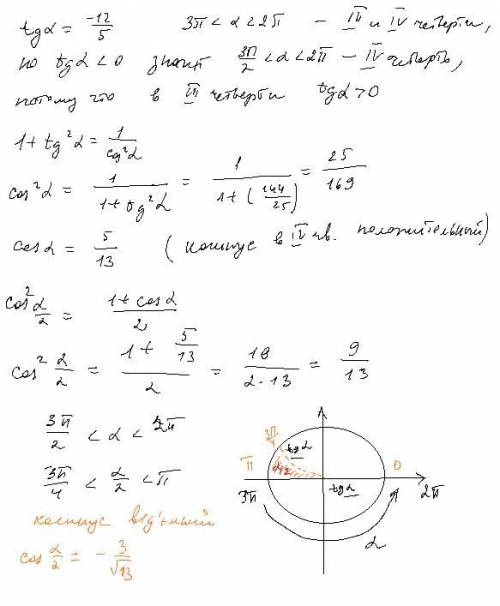 tgα = -12/5   3π < α < 2π – III и IV четверти,
но tgα < 0 значит 3π/2 < α < 2π – IV четверть,
потому что в III четверти tgα > 0
1 + tg²α = 1/cos²α
cos²α = 1/(1 + tg²α) = 1/(1 + (144/25)) = 25/169
cosα = 5/13 (косинус в IV чв. положительный)
cos² α/2 = (1 + cosα)/2
cos² α/2 = (1 + 5/13)/2 = 18/(2·13) = 9/13
3π/2 < α < 2π
3π/4 < α/2 < π
косинус
cos α/2 = - 3/√13
3π/4
tgα
π
α/2
0
3π
tgα
2π
α